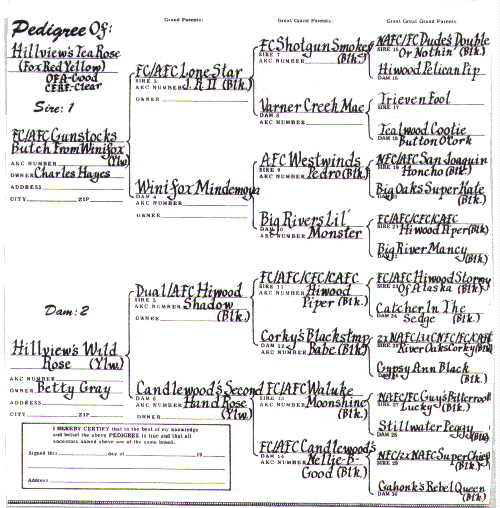 Grand Parents:
Great Grand Parents:
Great Great Grand Parents:
Pedigree Of:
Hillview's Tea Rose
(Fox Red Yellow)
OFA-Good
CERF-Clear
Sire: 1
FC/AFC Gunstocks
Butch From Winifox
(Ylw)
AKC NUMBER
OWNER Charles Hayes
ADDRESS
CITY ZIP
Dam: 2
Hillview's Wild
Rose (Ylw.)
AKC NUMBER
OWNER Betty Gray
ADDRESS
CITY ZIP
I HEREBY CERTIFY that to the best of my knowledge
and belief the above PEDIGREE is true and that all
ancestors named above are of the same breed.
Signed this day of 19
Address
FC/AFC Lone Star
SIRE 3
J.R II (Blk.)
AKC NUMBER
OWNER
Winifox Mindemoya
DAM 4
AKC NUMBER
OWNER
Dual/AFC Hiwood
SIRE 5
Shadow
AKC NUMBER
(Blk.)
OWNER
Candlewood's Second
DAM 6
Hand Rose
AKC NUMBER
(Ylw.)
OWNER
FC Shotgun Smokey
SIRE 7
(Blk.)
AKC NUMBER
Varner Creek Mae
DAM 8
AKC NUMBER
AFC Westwinds
SIRE 9
Pedro (Blk.)
AKC NUMBER
Big Rivers Lil'
DAM 10
Monster
AKC NUMBER
FC/AFC/CFC/CAFC
SIRE 11
Hiwood
AKC NUMBER
Piper (Blk.)
Corky's Blackstmp
DAM 12
Babe (Blk.)
AKC NUMBER
FC/AFC Waluke
SIRE 13
Moonshine
AKC NUMBER
(Blk.)
FC/AFC Candlewood's
DAM 14
Nellie-B-
AKC NUMBER
Good (Blk.)
NAFC/FC Dude's Double
SIRE 15
Or Nothin' (Blk.)
Hiwood Pelican Pip
DAM 16
Trieven Fool
SIRE 17
Tealwood Cootie
DAM 18
Button O'Cork
NFC/AFC San Joaquin
SIRE 19
Honcho (Blk.)
Big Oaks Super Kate
DAM 20
(Blk.)
FC/AFC/CFC/CAFC
SIRE 21
Hiwood Piper (Blk)
Big River Mancy
DAM 22
(Blk.)
FC/AFC Hiwood Stormy
SIRE 23
Of Alaska (Blk.)
Catcher In The
DAM 24
Sedge (Blk.)
2xNAFC/
River Oaks Corky (Blk)
Gypsy Ann Black
DAM 26
(Blk.)
NAFC/FC Guy's Bitterroot
SIRE 27
Lucky (Blk.)
Stillwater Peggy
DAM 28
(Blk.)
NFC/2xNAFC Super Chief
SIRE 29
(Blk.)
Gahonk's Rebel Queen
DAM 30
(Blk.)